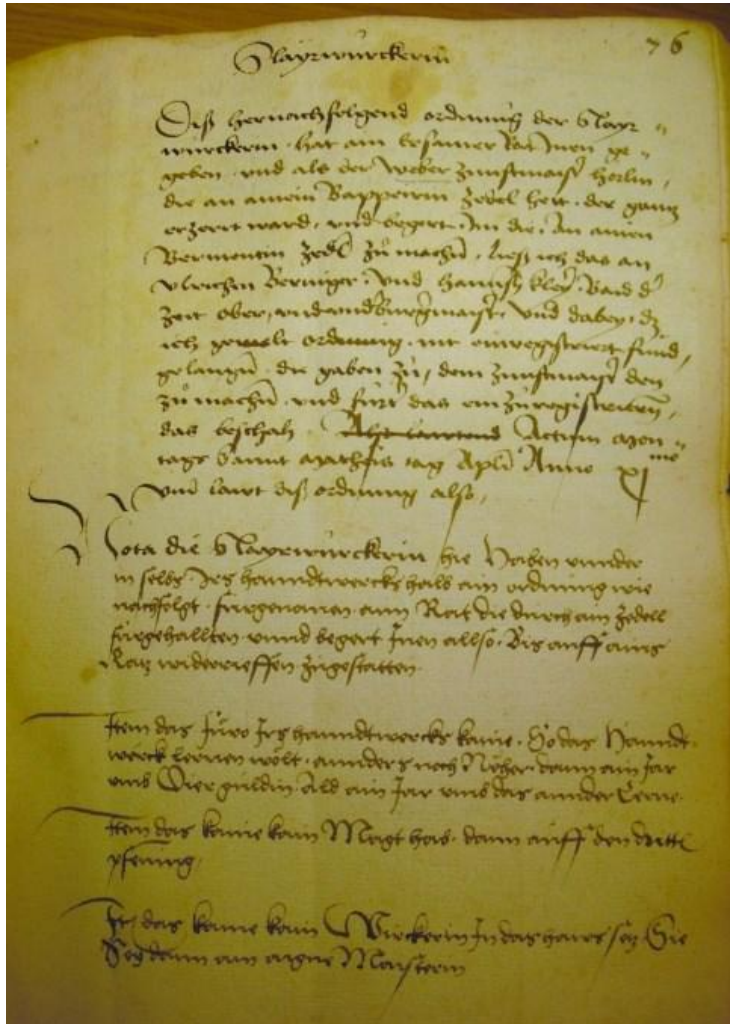 Slayrwürckerin 76
Diß hernachfolgend ordnung der Slayr„
würckerin hat ain ersamer Rat Inen ge„
geben vnd als der weber zunfftmaister
die an ainem Bappeirin zedel hett, der gantz
erzerrt ward, vnd begert Im die, An ainen
Bermentin zedel zů machen, ließ ich das an
Vlrichen Beringer, vnd Hannsen Bald d
zeit ober, vnd burgermaister, vnd dabey, dz
ich gemelt ordnung nit einregistriert fund,
die gaben zů, dem zunfftmaister den
zů machen vnd fürter das einzůregistrieren,
das beschah Actum Mon„
tags Sannt Matheis tag Apli Anno XI mo
vnd lawt diß ordnung also,
Nota die Slayrwürckerin hie Haben vnnder
in selbs Irs hanndtwercks halb ain ordnung wie
nachfolgt fürgenomen ainm Rat die durch ain zedell
fürgehallten vnnd begert Inen allso Bis auff ains
Ratz widerrieffen zůgestatten
Item das füro Irs hanndtwercks kaine So das Hanndt
werck lernen wölt annders noch Näher dann ain Jar
vmb Vier guldin Ald ain Jar vmb das annder Lerne
Item das kaine kain Magt hab dann auff den dritten
pfenning,
It das kaine kain Würckerin In das hawß setz Sie
Sey dann ain aigne Maisterin